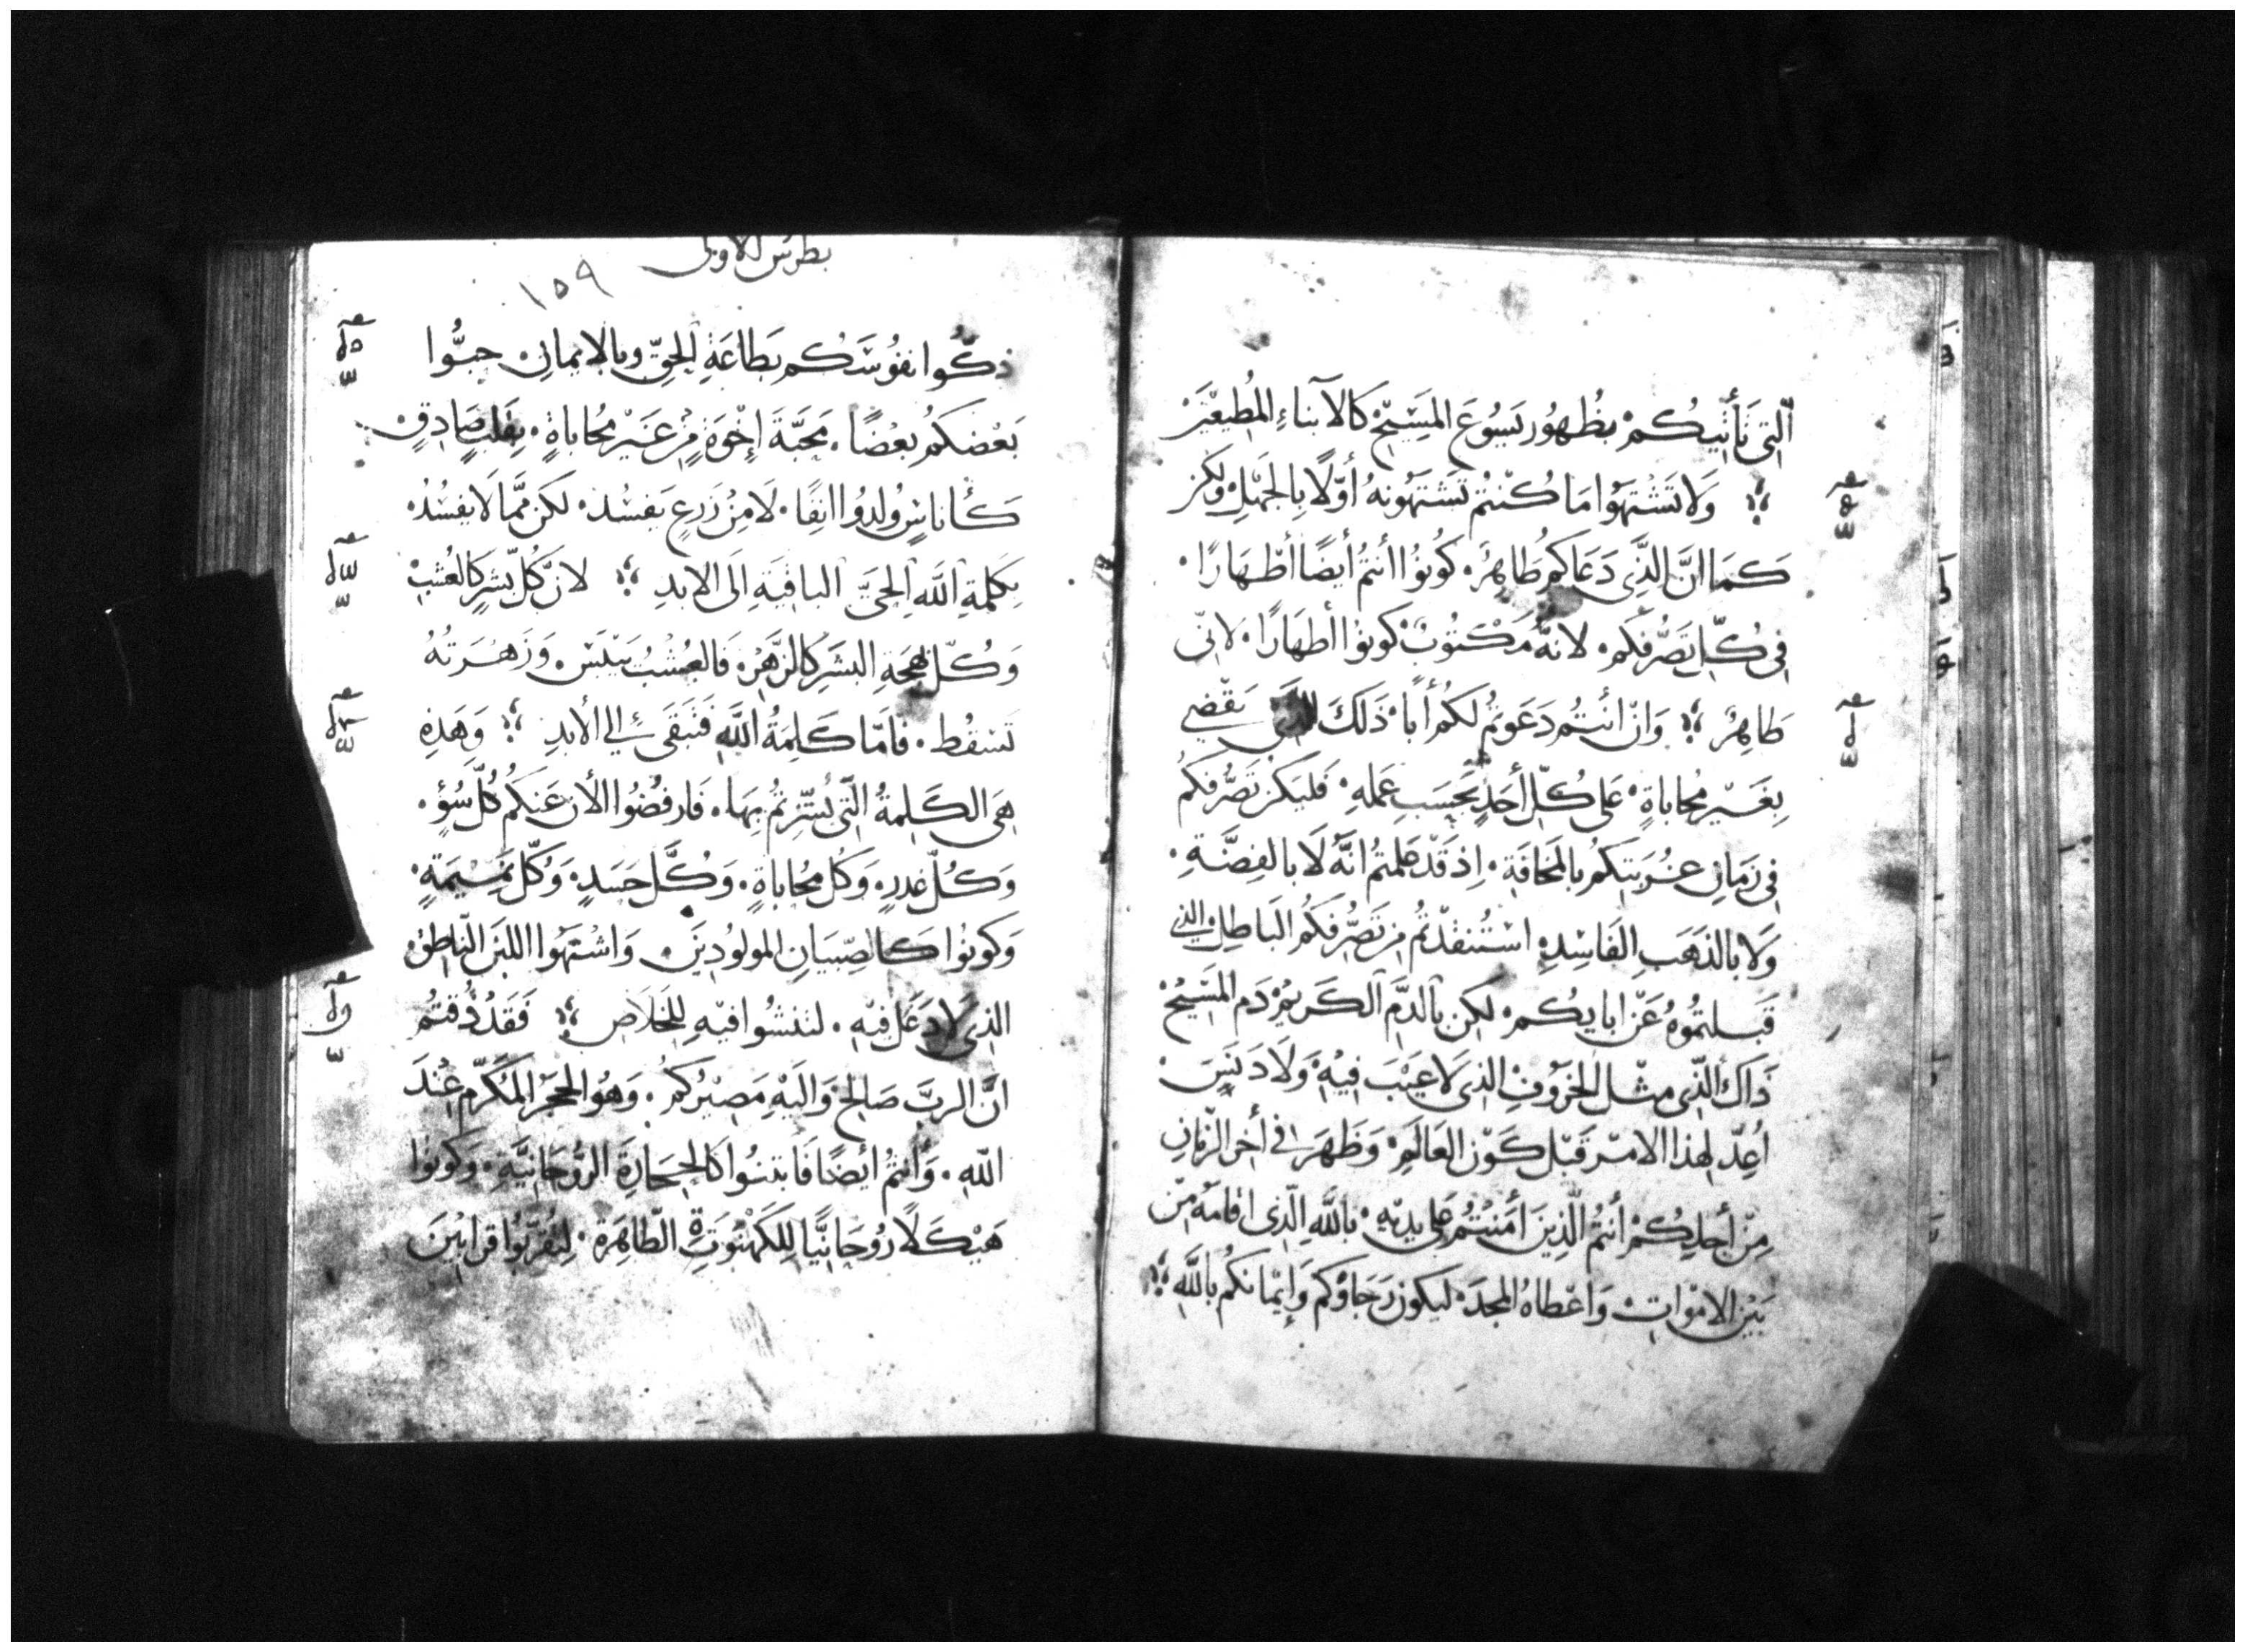 اَلتِى تَأتِيكُمْ بظُهُور يَسُوعَ المَسِيحْ كَالاَبناءِ المُطِيعِيَن
وَلاَ تَشْتَهَوا مَا كُنتُم تَشتَهونهُ أوّلاً بِالجَهلِ ولكن
كَمَا انَّ الذَّى دَعَاكُم طَاهِرٌ كُونُوا أنتُم أيضًا أطْهَارًا
فِى كُلِّ تَصَرُّفكم لانهُ مَكْتوُبٌ كونوا أطهَارًا لانى
طَاهِرٌ وَانْ انتُم دَعَوتُم لَكُم أبًا ذَلكَ الذى يَقْضِي
بِغَيْر مُحاباةٍ عَلى كُلِّ أحَدٍ بَحسَبِ عَملهِ فَليَكن تَصَرُّفكمُ
فِى زمَانِ غُربَتِكمُ بالمخَافَةِ اِذ قَدْ عَلمتُم انَّهُ لَا بالفِضَّةِ
وَلا بالذهَبِ الفَاسِدِ استُنقذتُم مِن تَصَرُّفكُم البَاطِل الذي
قَبلتمُوهُ عَن ابايكُم لكِن بالدَّم الكَريم دَم المسَيحْ
ذَاك الذِّى مِثل الخرَوُفِ الذى لاَ عيَبَ فِيهْ وَلاَ دَنَسَ
اُعِدّ لهذا الامْر قَبْل كَوْن العَالَمِ وَظَهَر فى أخر الزّمَانِ
مِنْ أجلِكُم أنتُم الّذِينَ اَمَنتُم عَلى يدَيْهِ باللَّهِ الّذِى اقامَهُ مِن
بَيْن الامْوَاتِ وَاعْطاهُ المجدَ ليَكون رَجَاؤكم وَايمانكُم باللَّهِ
بطرس الاولى
١٥٩
ذكّوا نفوُسَكُم بَطاعَةِ الحقِّ وبالايمانِ حبُّوا
بَعْضَكمُ بعْضًا مَحَبَّةَ اِخْوَةٍ مِن غَيْر مُحاباةٍ بقَلبٍ صَادِقٍ
كَأناسٍ وُلِدوُا انِفًا لَا مِنْ زَرعٍ يَفسُد لكن ممَّا لاَ يفسُدُ
بكَلمةِ اللَّهِ الحيَّ الباقيَةِ اِلَى الابدِ لانَّ كُلّ بشرٍ كالعُشبْ
وَكُلّ بهجَةِ البشَرِ كالزَّهْر فَالعُشْبُ يَيبَسْ وَزَهْرَتُهُ
تَسقُط فَامّا كَلِمَةُ اللَّهِ فَتبَقَى اِلي الأبدِ وَهَذِهِ
هِىَ الكَلِمةُ الّتى بُشِّرتُم بِهَا فَارفضُوا الأن عَنكمُ كُلّ سُؤٍ
وَكُلّ غدرٍ وَكُل مُحاباةٍ وَكُلّ حَسَدٍ وَكُلّ نَمِيمَةٍ
وَكونوُا كَالصِّبيَانِ المولوُدِينَ وَاشْتهَوا اللبَن الناطِق
الذِى لاَ دَغَل فيْهِ لتنشُوا فيْهِ للِخَلاَصِ فَقَدْ ذُقتُم
انَّ الربَّ صَالِح وَاليَهْ مَصِيرُكم وَهوُ الحجَر المُكَرَّم عِندَ
اللهِ وَأنتُم ايْضًا فَابتنُوا كَالحِجَارةَ الروُّحَانِيَّةِ وَكونوُا
هَيْكَلاً روُحَانِيًّا للِكَهْنُوَتةِ الطّاهِرَة لتُقَرّبوُا قرَابيْنَ